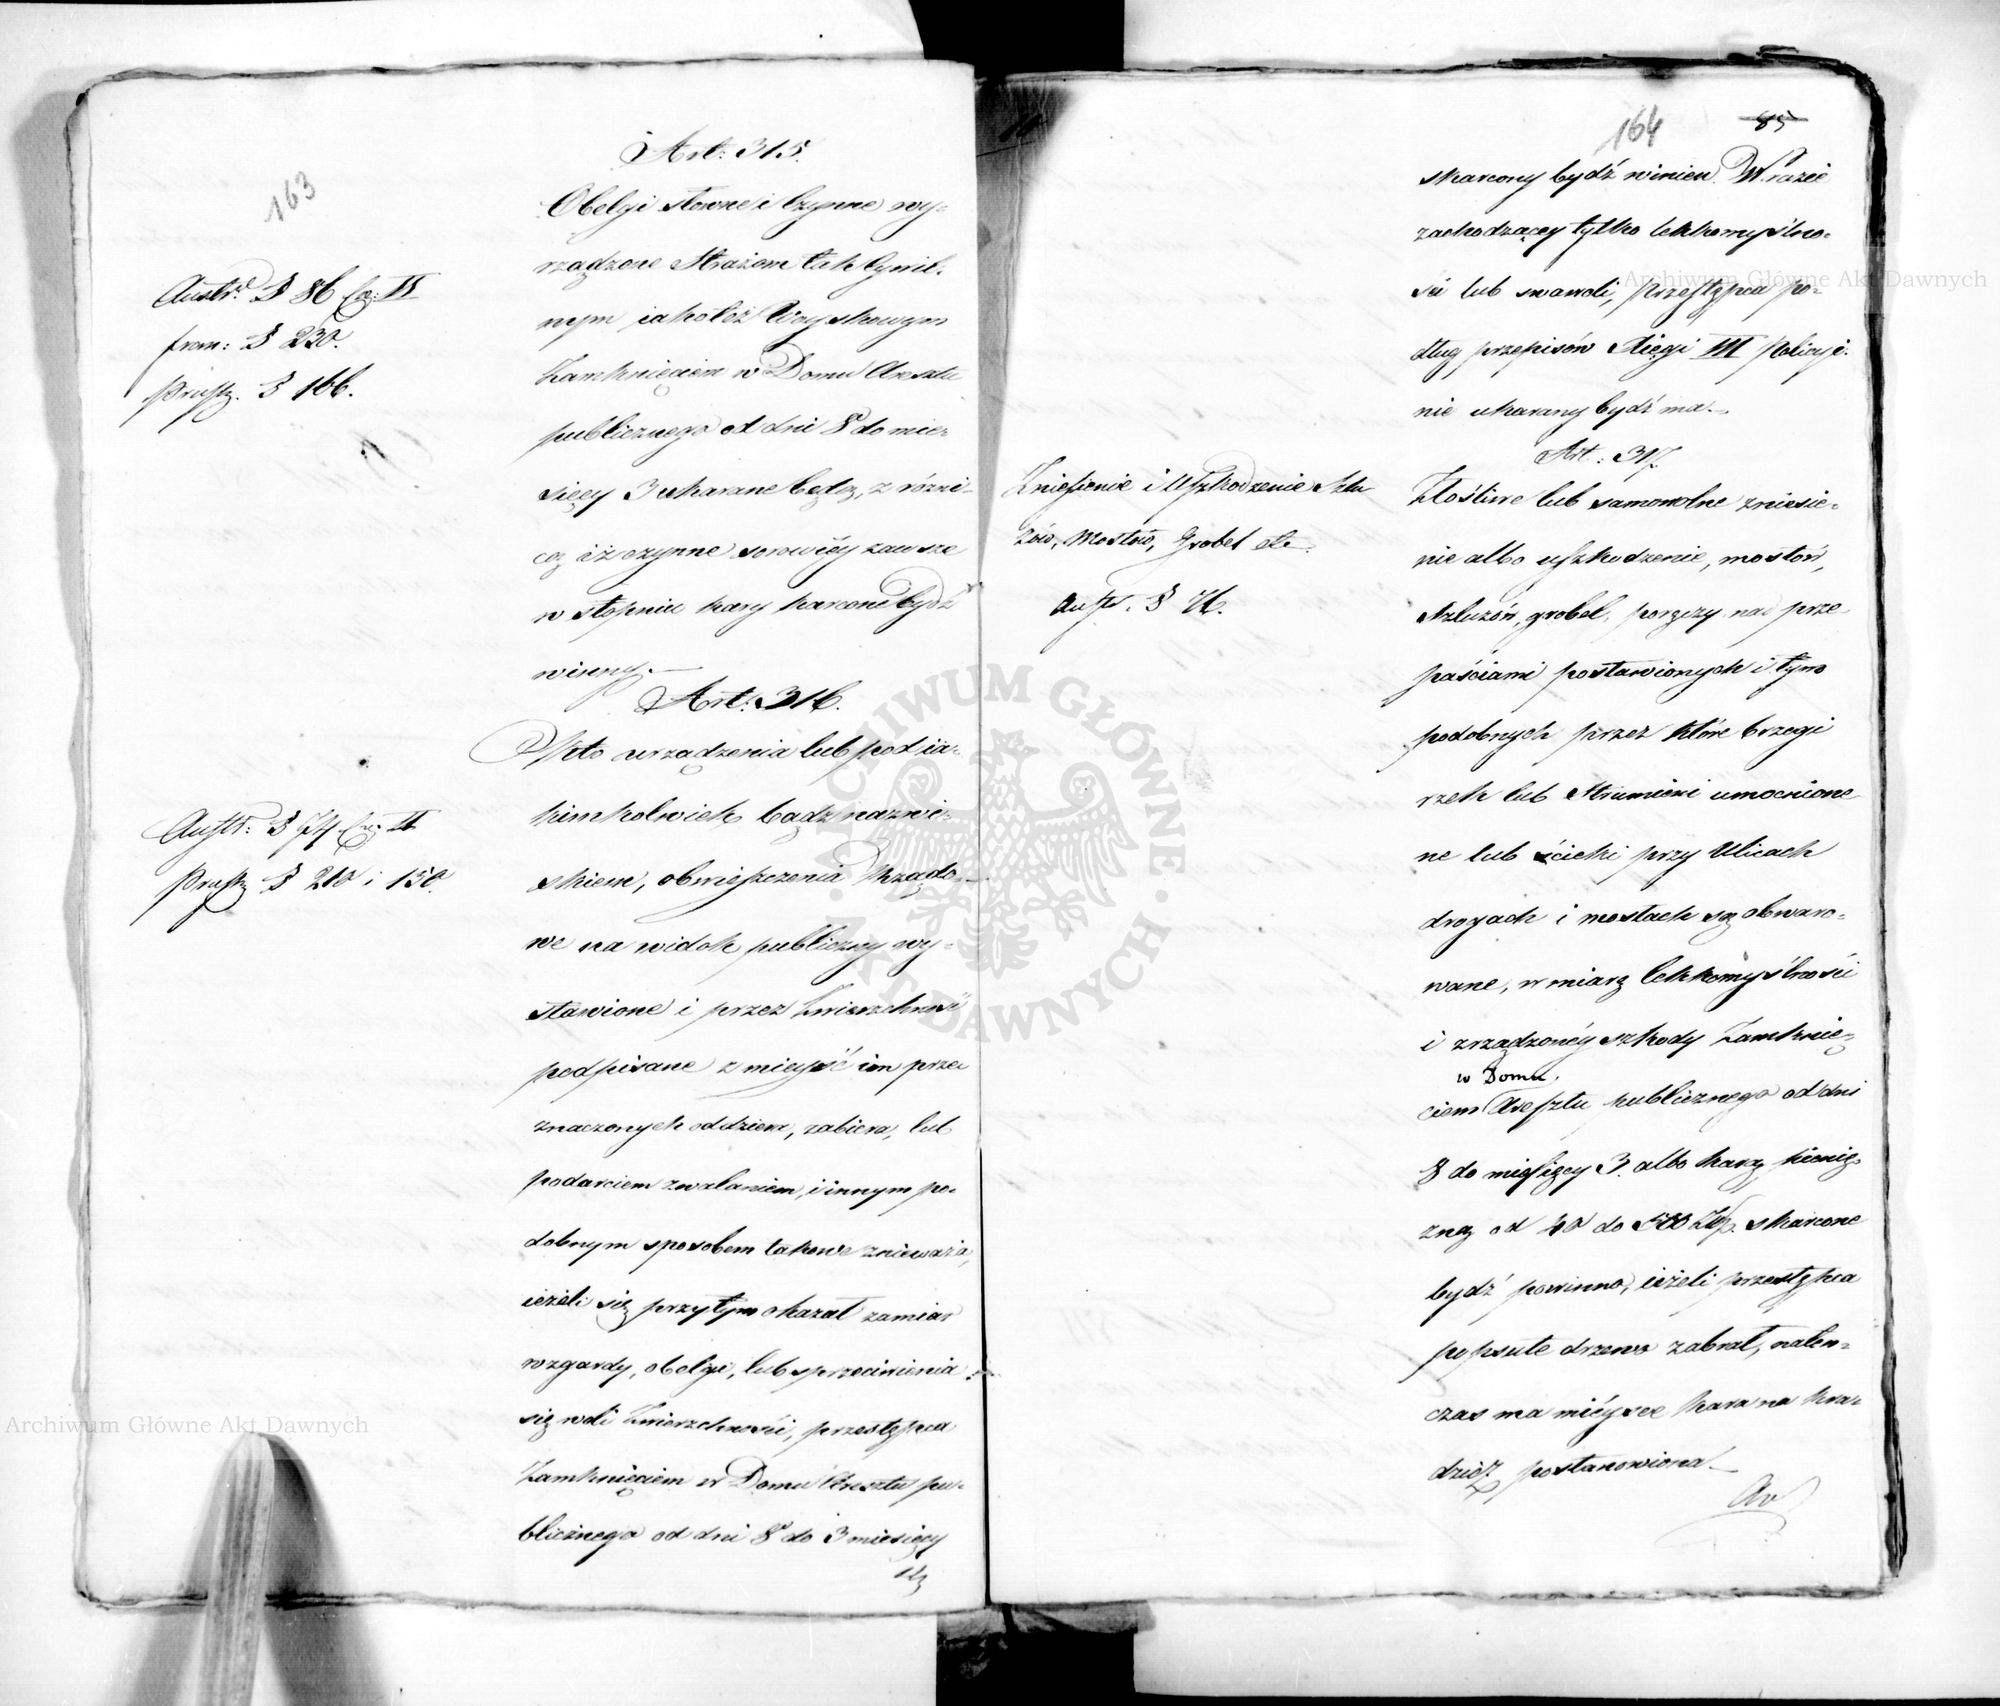 163
Art: 315.
Obelgi słowne i Czynne wy=
rządzone Strażom tak Cywil=
nym iakoteż Woyskowym
Zamknięciem w Domu Aresztu
publicznego od dni 8 do mie=
sięcy 3 ukarane będą, z różni=
cą iż czynne surowiéy zawsze
w stopniu kary karcone bydź
winny.—
Austr: § 86 Cz: II
fran: § 230.
Prusk. § 166.
Art: 316.
Kto urządzenia lub pod ia=
kimkolwiek bądź nazwi=
skiem, obwieszczenia Rządo=
we na widok publiczny wy=
stawione i przez Zwierzchność
podpisane z mieysć im prze
znaczonych oddziera, zabiera, lub
podarciem zwalaniem, i innym po=
dobnym sposobem takowe znieważa,
ieżeli się przytym okazał zamiar
wzgardy, obelgi, lub sprzeciwienia
się woli Zwierzchności, przestępca
Zamknięciem w Domu Aresztu pu=
blicznego od dni 8 do 3 miesięcy
Austr: § 74 Cz: II
Prusk § 210 i 150.
164
85
skarcony bydź winien. W razie
zachodzącey tylko lekkomyślno=
ści lub swawoli, przestępca po=
dług przepisów Xięgi III Policyi=
nie ukarany bydź ma.—
Art: 317.
Złośliwe lub samowolne zniesie=
nie albo uszkodzenie, mostów,
Szluzów, grobel, poręczy nad prze
paściami postawionych i tym
podobnych przez które brzegi
rzek lub Strumieni umocnione
ne lub ścieki przy Ulicach
drogach i mostach są obwaro=
wane, w miarę lekkomyślności
i zrządzonéy szkody Zamknię=
w Domu
ciem Aresztu publicznego od dni
8 do miesięcy 3. albo karą pienię=
żną od 40 do 500 Złp. skarcone
bydź powinno, ieżeli przestępca
popsute drzewo zabrał, naten=
czas ma mieysce kara na kra=
dzież postanowiona.—
Zniesienie i Uszkodzenie Szlu
zów, Mostów, Grobel etc.
Austr. § 76.
Archiwum Główne Akt Dawnych
Archiwum Główne Akt Dawnych
ARCHIWUM GŁÓWNE • AKT DAWNYCH •